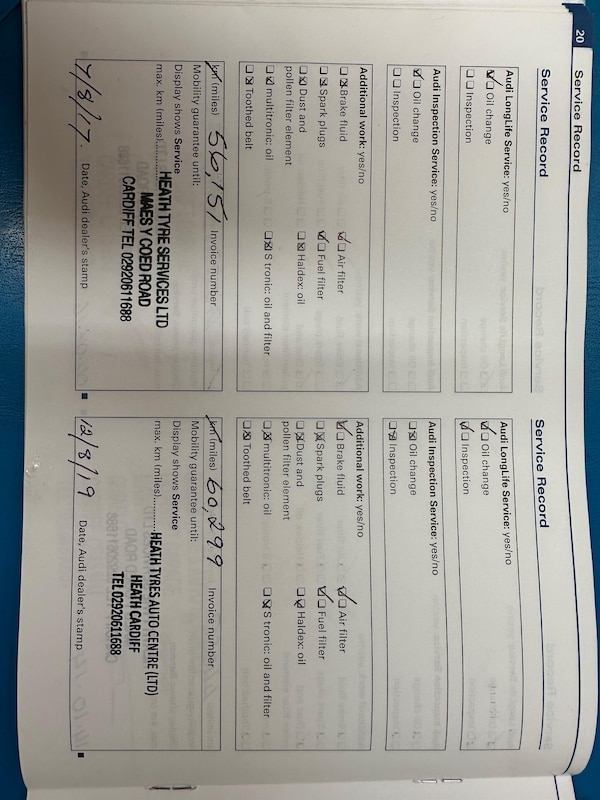 20
Service Record
Service Record
Audi LongLife Service: yes/no
Oil change
Inspection
Audi Inspection Service: yes/no
Oil change
Inspection
Additional work: yes/no
Brake fluid
Air filter
Spark plugs
Fuel filter
Dust and
pollen filter element
Haldex: oil
multitronic: oil
S tronic: oil and filter
Toothed belt
km (miles) 56,151 Invoice number
Mobility guarantee until:
Display shows Service
max. km (miles)
HEATH TYRE SERVICES LTD
MAES Y COED ROAD
CARDIFF TEL 02920611688
7/8/17. Date, Audi dealer's stamp
Service Record
Audi LongLife Service: yes/no
Oil change
Inspection
Audi Inspection Service: yes/no
Oil change
Inspection
Additional work: yes/no
Brake fluid
Air filter
Spark plugs
Fuel filter
Dust and
pollen filter element
Haldex: oil
multitronic: oil
S tronic: oil and filter
Toothed belt
km (miles) 60,299 Invoice number
Mobility guarantee until:
Display shows Service
max. km (miles)
HEATH TYRES AUTO CENTRE (LTD)
HEATH CARDIFF
TEL 02920611688
12/8/19 Date, Audi dealer's stamp